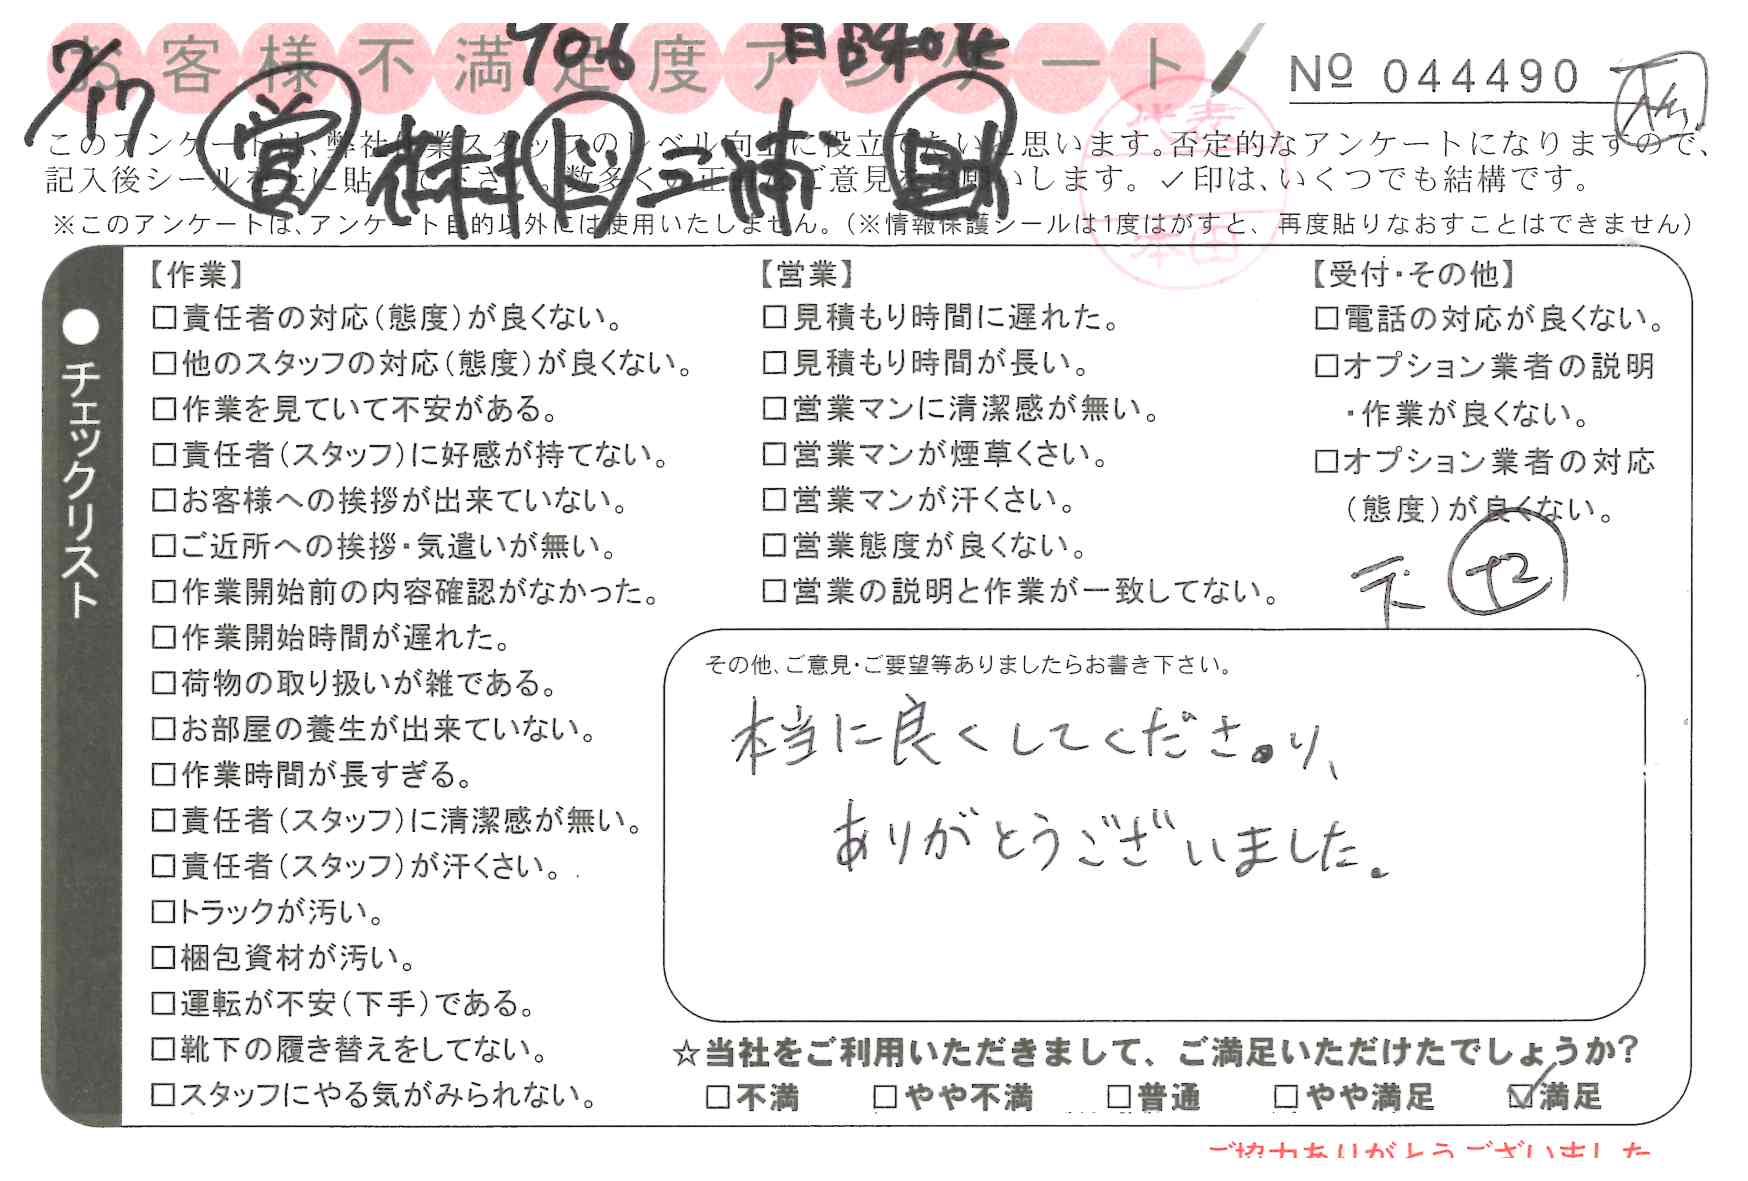 お客様不満足度アンケート
No 044490
7/17
営 株 ど 三浦
このアンケートは、弊社作業スタッフのレベル向上に役立てたいと思います。否定的なアンケートになりますので、
記入後シールを上に貼って下さい。数多くの正直なご意見をお願いします。✓印は、いくつでも結構です。
※このアンケートは、アンケート目的以外には使用いたしません。(※情報保護シールは1度はがすと、再度貼りなおすことはできません)
本田
●チェックリスト
【作業】
□責任者の対応(態度)が良くない。
□他のスタッフの対応(態度)が良くない。
□作業を見ていて不安がある。
□責任者(スタッフ)に好感が持てない。
□お客様への挨拶が出来ていない。
□ご近所への挨拶・気遣いが無い。
□作業開始前の内容確認がなかった。
□作業開始時間が遅れた。
□荷物の取り扱いが雑である。
□お部屋の養生が出来ていない。
□作業時間が長すぎる。
□責任者(スタッフ)に清潔感が無い。
□責任者(スタッフ)が汗くさい。
□トラックが汚い。
□梱包資材が汚い。
□運転が不安(下手)である。
□靴下の履き替えをしてない。
□スタッフにやる気がみられない。
【営業】
□見積もり時間に遅れた。
□見積もり時間が長い。
□営業マンに清潔感が無い。
□営業マンが煙草くさい。
□営業マンが汗くさい。
□営業態度が良くない。
□営業の説明と作業が一致してない。
【受付・その他】
□電話の対応が良くない。
□オプション業者の説明
・作業が良くない。
□オプション業者の対応
(態度)が良くない。
その他、ご意見・ご要望等ありましたらお書き下さい。
本当に良くしてくださり、
ありがとうございました。
☆当社をご利用いただきまして、ご満足いただけたでしょうか?
□不満 □やや不満 □普通 □やや満足 ☑満足
ご協力ありがとうございました